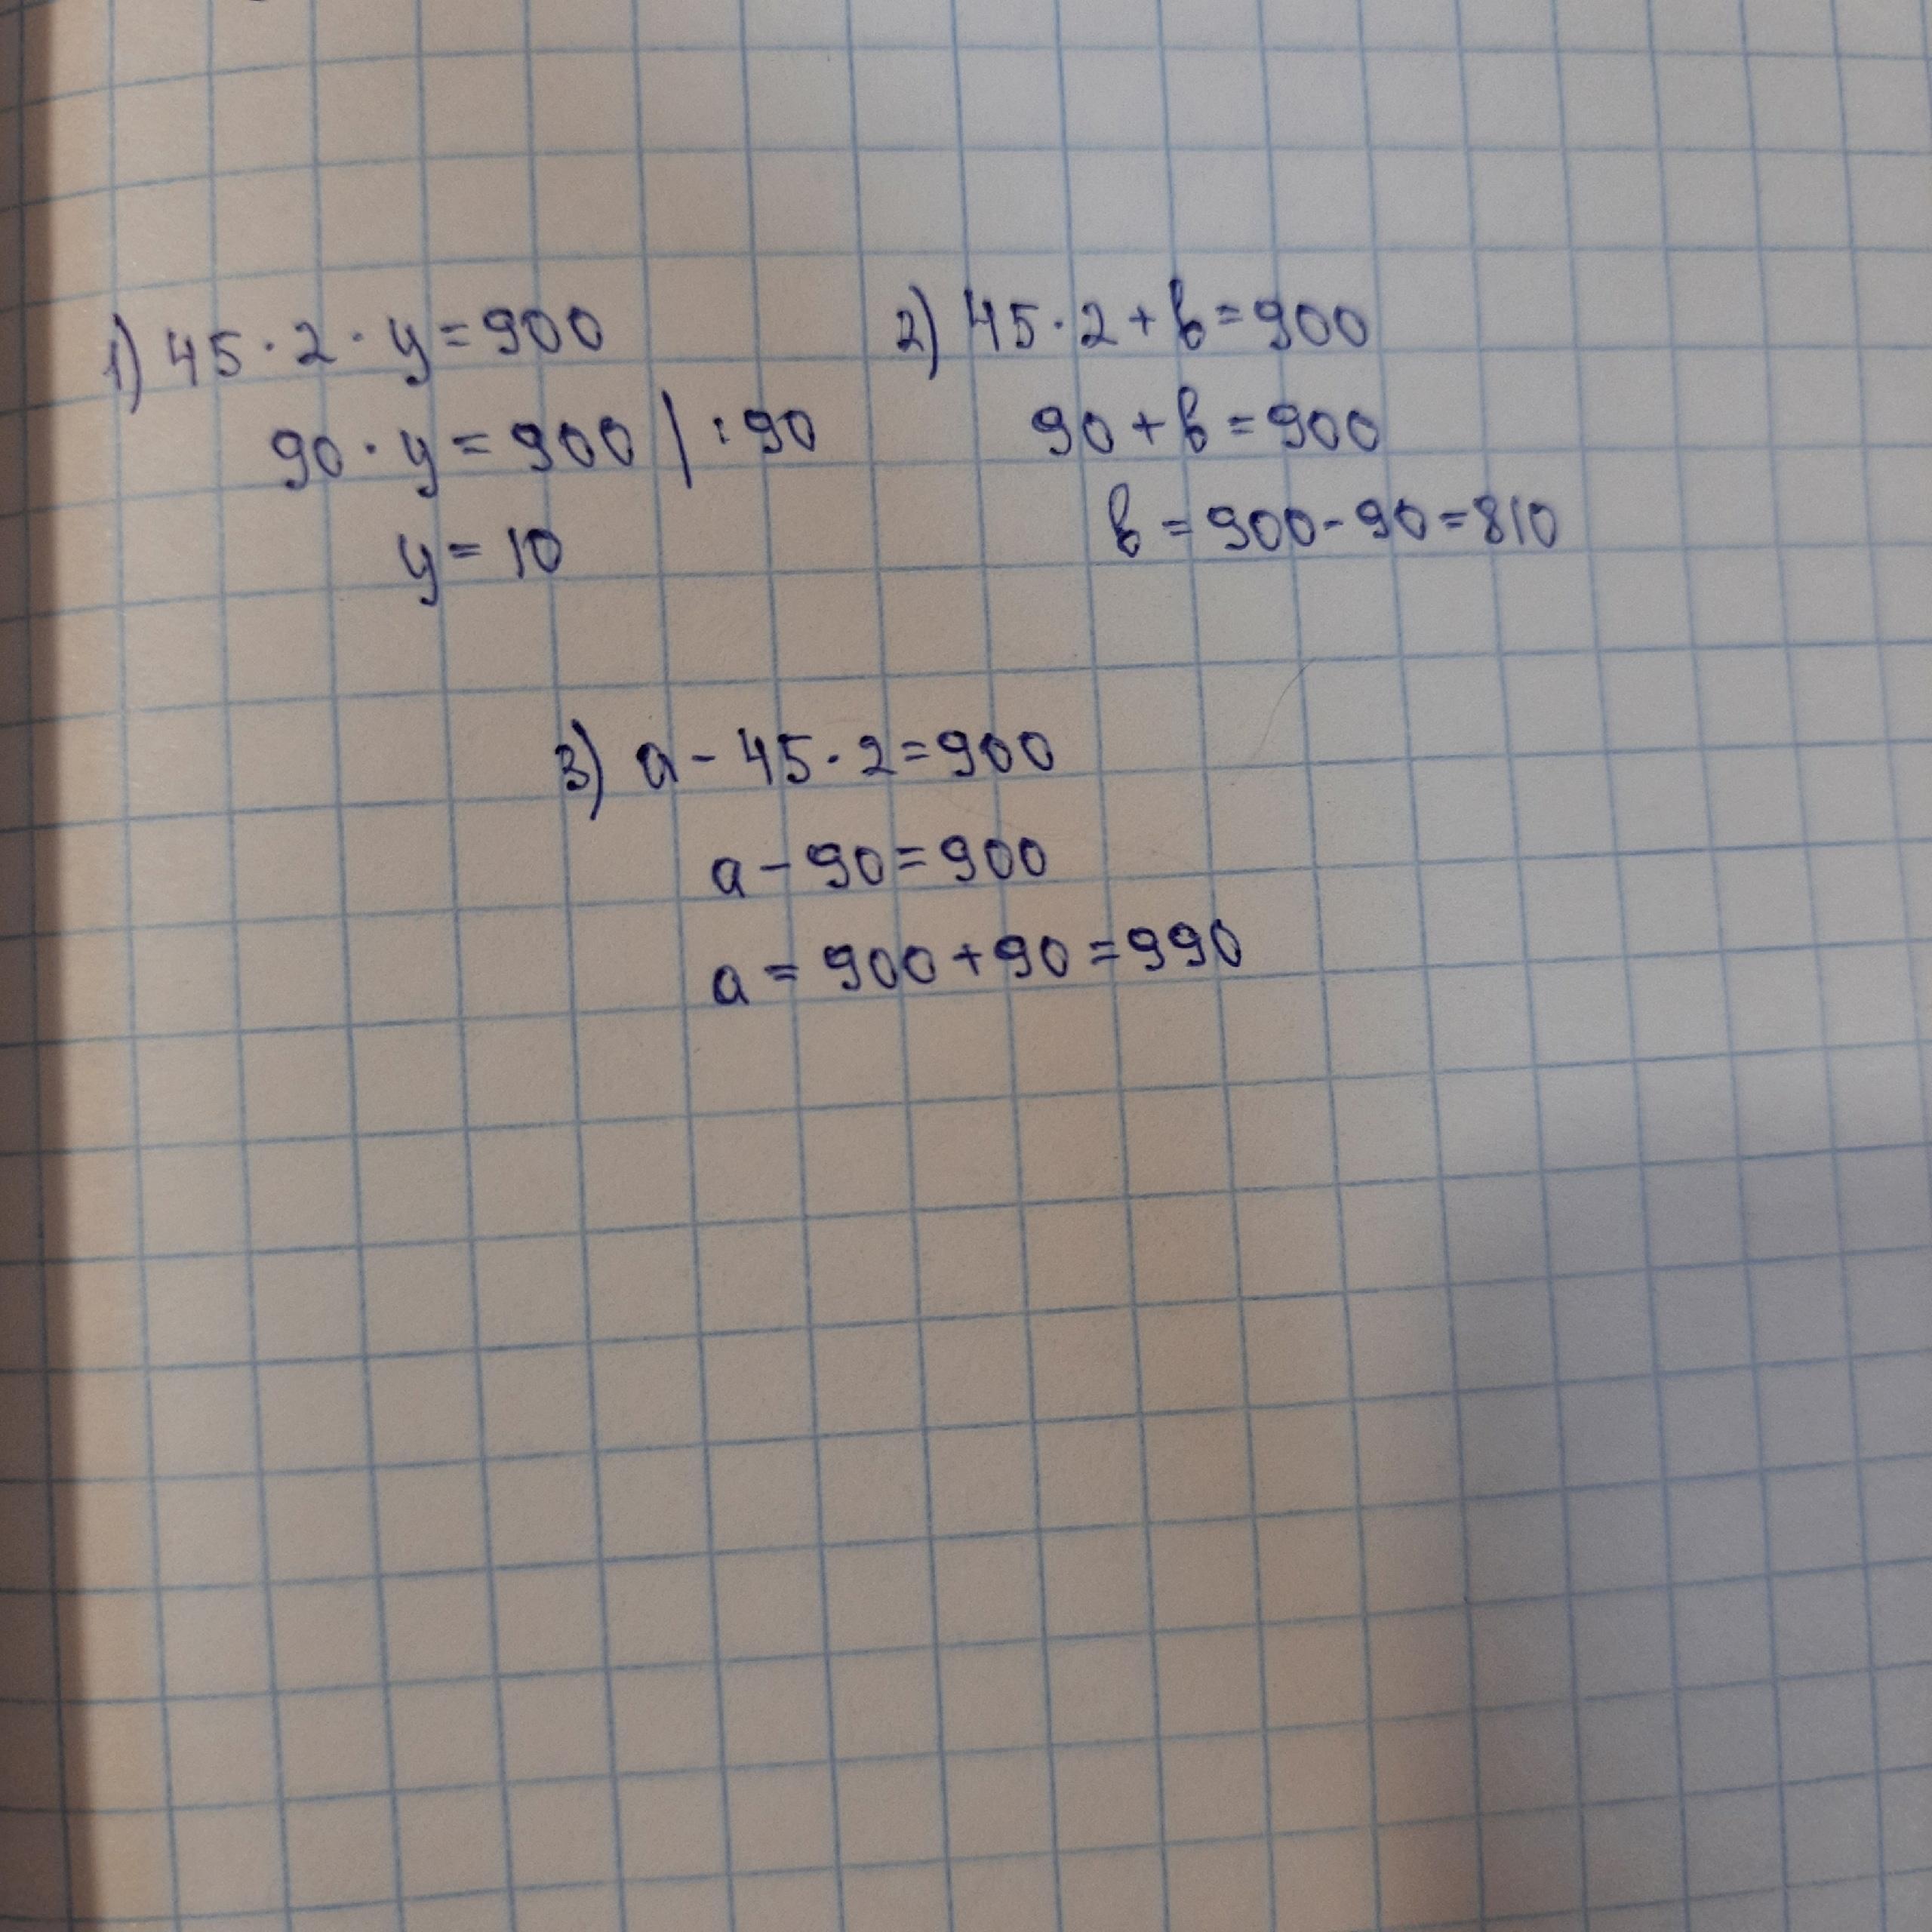 1) 45 · 2 · y = 900
90 · y = 900 | : 90
y = 10
2) 45 · 2 + b = 900
90 + b = 900
b = 900 - 90 = 810
3) a - 45 · 2 = 900
a - 90 = 900
a = 900 + 90 = 990